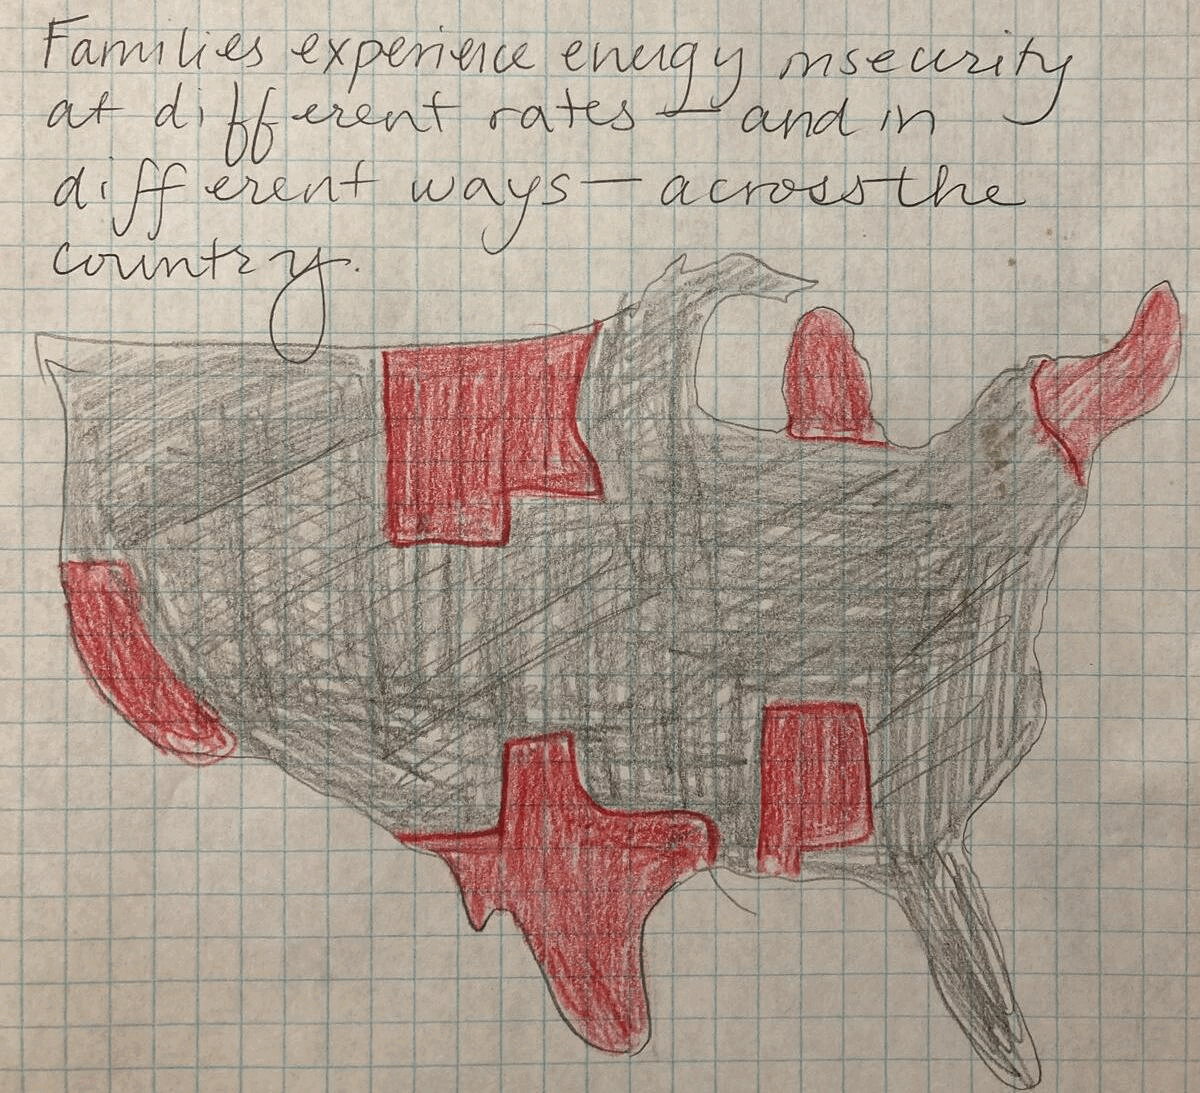 Families experience energy insecurity
at different rates — and in
different ways — across the
country.